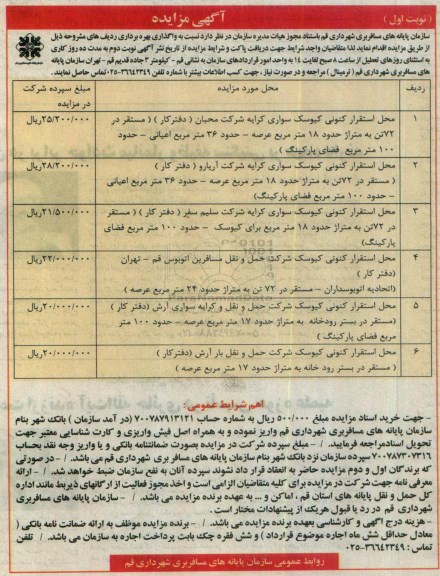 آگهی مزایده
( نوبت اول )
سازمان پایانه های مسافربری شهرداری قم باستناد مجوز هیات مدیره سازمان در نظر دارد نسبت به واگذاری بهره برداری ردیف های مشروحه ذیل
از طریق مزایده اقدام نماید لذا متقاضیان واجد شرایط جهت دریافت پاکت و شرایط مزایده از تاریخ نشر آگهی نوبت دوم به مدت ده روز کاری
به استثنای روزهای تعطیل از ساعت ۸ صبح لغایت ۱۴ به واحد امور قراردادهای سازمان به نشانی قم - کیلومتر ۳ جاده قدیم قم - تهران سازمان پایانه
های مسافربری شهرداری قم ( ترمینال ) مراجعه و در صورت نیاز ، جهت کسب اطلاعات بیشتر با شماره تلفن ۳۶۶۴۲۳۴۹-۰۲۵ تماس حاصل نمایند.
ردیف
محل مورد مزایده
مبلغ سپرده شرکت
در مزایده
۱
محل استقرار کنونی کیوسک سواری کرایه شرکت محبان ( دفترکار ) ( مستقر در
۷۲تن به متراژ حدود ۱۸ متر مربع عرصه - حدود ۳۶ متر مربع اعیانی - حدود
۱۰۰ متر مربع فضای پارکینگ )
۲۵/۲۰۰/۰۰۰ریال
۲
محل استقرار کنونی کیوسک سواری کرایه شرکت آریارو ( دفترکار )
( مستقر در ۷۲تن به متراژ حدود ۱۸ متر مربع عرصه - حدود ۳۶ متر مربع اعیانی
- حدود ۱۰۰ متر مربع فضای پارکینگ)
۲۸/۲۰۰/۰۰۰ریال
۳
محل استقرار کنونی کیوسک سواری کرایه شرکت سلیم سفیر ( دفتر کار ) ( مستقر
در ۷۲تن به متراژ حدود ۱۸ متر مربع برای کیوسک - حدود ۱۰۰ متر مربع فضای
پارکینگ)
۲۱/۵۰۰/۰۰۰ریال
۴
محل استقرار کنونی کیوسک شرکت حمل و نقل مسافرین اتوبوس قم - تهران
(دفتر کار )
(اتحادیه اتوبوسداران - مستقر در ۷۲ تن به متراژ حدود ۲۴ متر مربع عرصه )
۲۲/۰۰۰/۰۰۰ریال
۵
محل استقرار کنونی کیوسک شرکت حمل و نقل و کرایه سواری آرش (دفتر کار )
(مستقر در بستر رودخانه به متراژ حدود ۱۷ متر مربع عرصه - حدود ۱۰۰ متر
مربع فضای پارکینگ )
۲۰/۰۰۰/۰۰۰ریال
۶
محل استقرار کنونی کیوسک شرکت حمل و نقل بار آرش (دفترکار )
(مستقر در بستر رود خانه به متراژ حدود ۱۷ متر مربع عرصه )
۲۰/۰۰۰/۰۰۰ریال
اهم شرایط عمومی:
- جهت خرید اسناد مزایده مبلغ ۵۰۰/۰۰۰ ریال به شماره حساب ۷۰۰۷۸۷۹۱۳۱۲۱ (در آمد سازمان ) بانک شهر بنام
سازمان پایانه های مسافربری شهرداری قم واریز نموده و به همراه اصل فیش واریزی و کارت شناسایی معتبر جهت
تحویل اسناد مراجعه فرمایید. / - مبلغ سپرده شرکت در مزایده بصورت ضمانتنامه بانکی و یا واریز وجه نقد بحساب
۷۰۰۷۸۷۳۰۷۳۱۶ سپرده سازمان نزد بانک شهر بنام سازمان پایانه های مسافر بری شهرداری قم می باشد. / - در صورتی
که برندگان اول و دوم مزایده حاضر به انعقاد قرار داد نشوند سپرده آنان به نفع سازمان ضبط خواهد شد. / - ارائه
معرفی نامه جهت شرکت در مزایده برای کلیه متقاضیان الزامی است و اخذ مجوز فعالیت از ارگانهای ذیربط مانند اداره
کل حمل و نقل پایانه های استان قم ، اماکن و ... به عهده برنده مزایده می باشد. / - سازمان پایانه های مسافربری
شهرداری قم در رد یا قبول هریک از پیشنهادات مختار است.
- هزینه درج آگهی و کارشناسی بعهده برنده مزایده می باشد. / - برنده مزایده موظف به ارائه ضمانت نامه بانکی (
معادل حداقل شش ماه اجاره موضوع قرارداد ) و شش فقره چک بابت پرداخت اجاره به سازمان می باشد. / تلفن
تماس: ۳۶۶۴۲۳۴۹-۰۲۵
روابط عمومی سازمان پایانه های مسافربری شهرداری قم